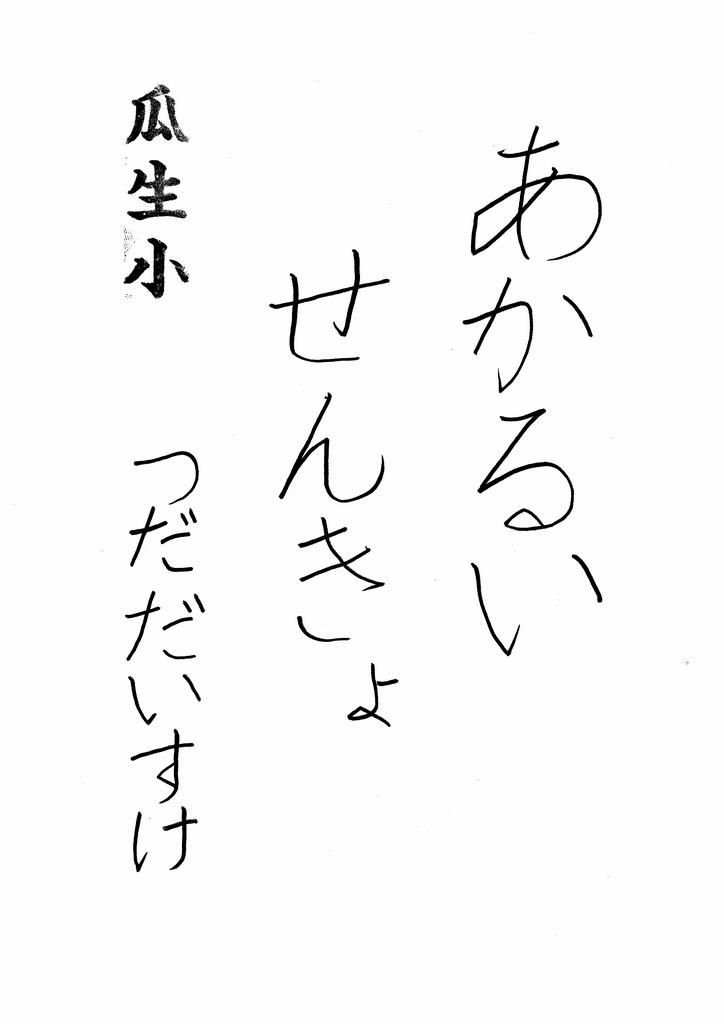 あかるい
せんきょ
瓜生小 つだだいすけ